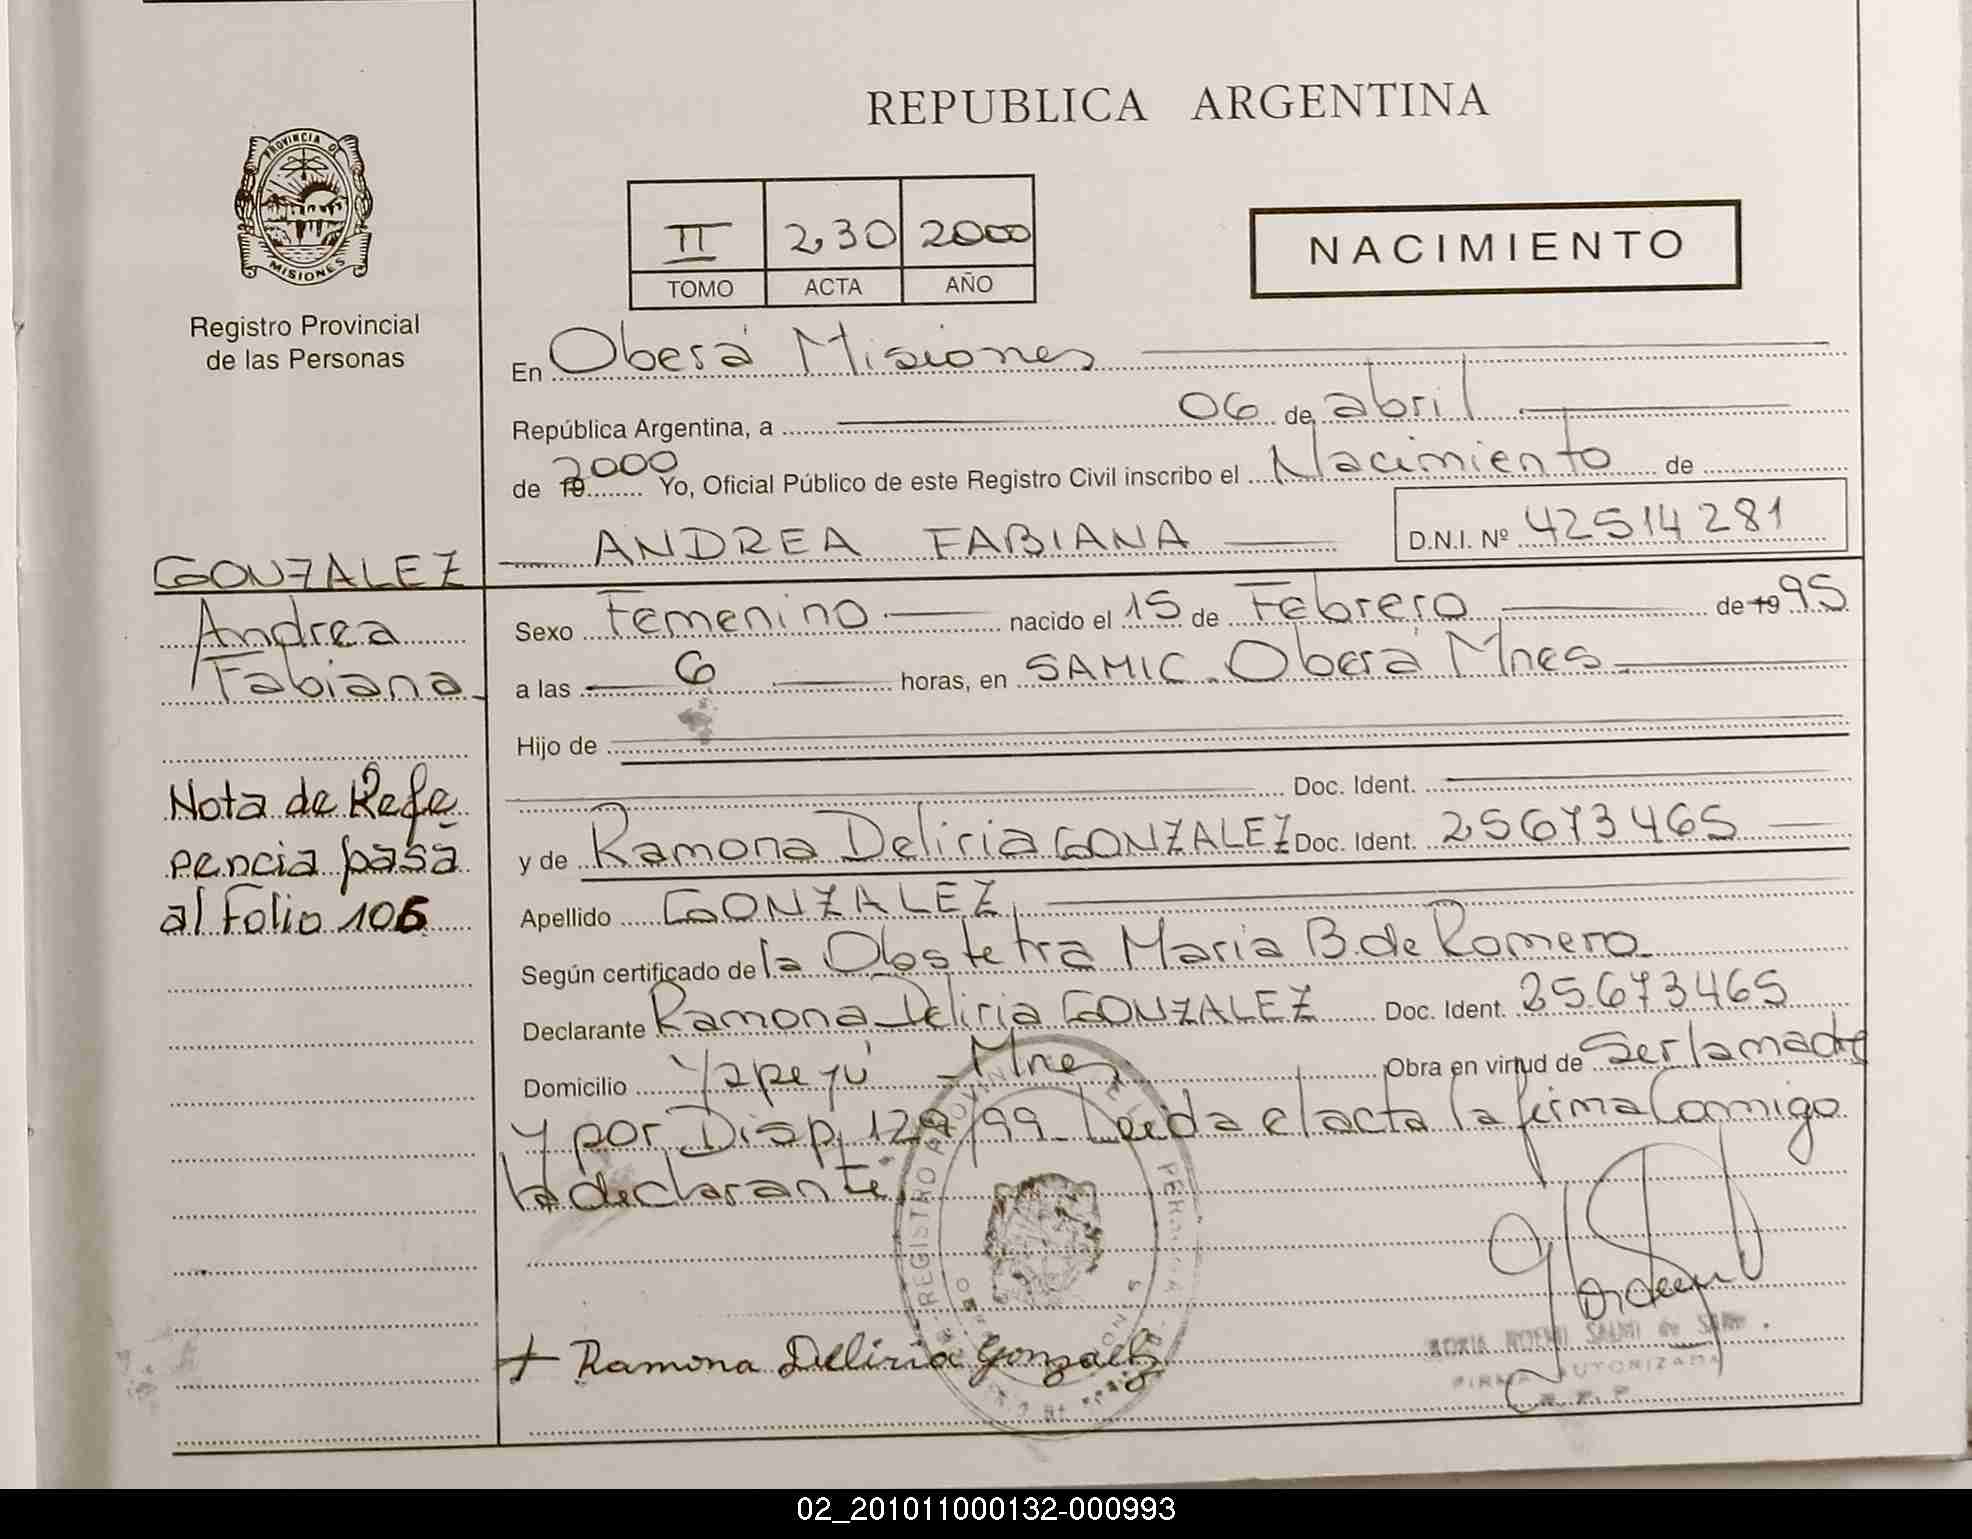 REPUBLICA ARGENTINA
PROVINCIA D
MISIONES
Registro Provincial
de las Personas
II 230 2000
TOMO ACTA AÑO
NACIMIENTO
En Oberá Misiones
República Argentina, a 06 de abril
de 19 2000 Yo, Oficial Público de este Registro Civil inscribo el Nacimiento de
ANDREA FABIANA D.N.I. Nº 42514281
GONZALEZ
Andrea
Fabiana
Nota de Refe
rencia pasa
al Folio 106
Sexo Femenino nacido el 15 de Febrero de 19 95
a las 6 horas, en SAMIC. Oberá Mnes
Hijo de
Doc. Ident.
y de Ramona Deliria GONZALEZ Doc. Ident. 25673465
Apellido GONZALEZ
Según certificado de la Obstetra Maria B. de Romero
Declarante Ramona Deliria GONZALEZ Doc. Ident. 25673465
Domicilio Yapeyú Mnes Obra en virtud de Ser la madre
y por Disp. 129/99 Leida el acta la firma Conmigo
la declarante.
REGISTRO PROVIN
+ Ramona Deliria Gonzalez
NOEMI
FIRMA AUTORIZADA
R.P.P
02_201011000132-000993